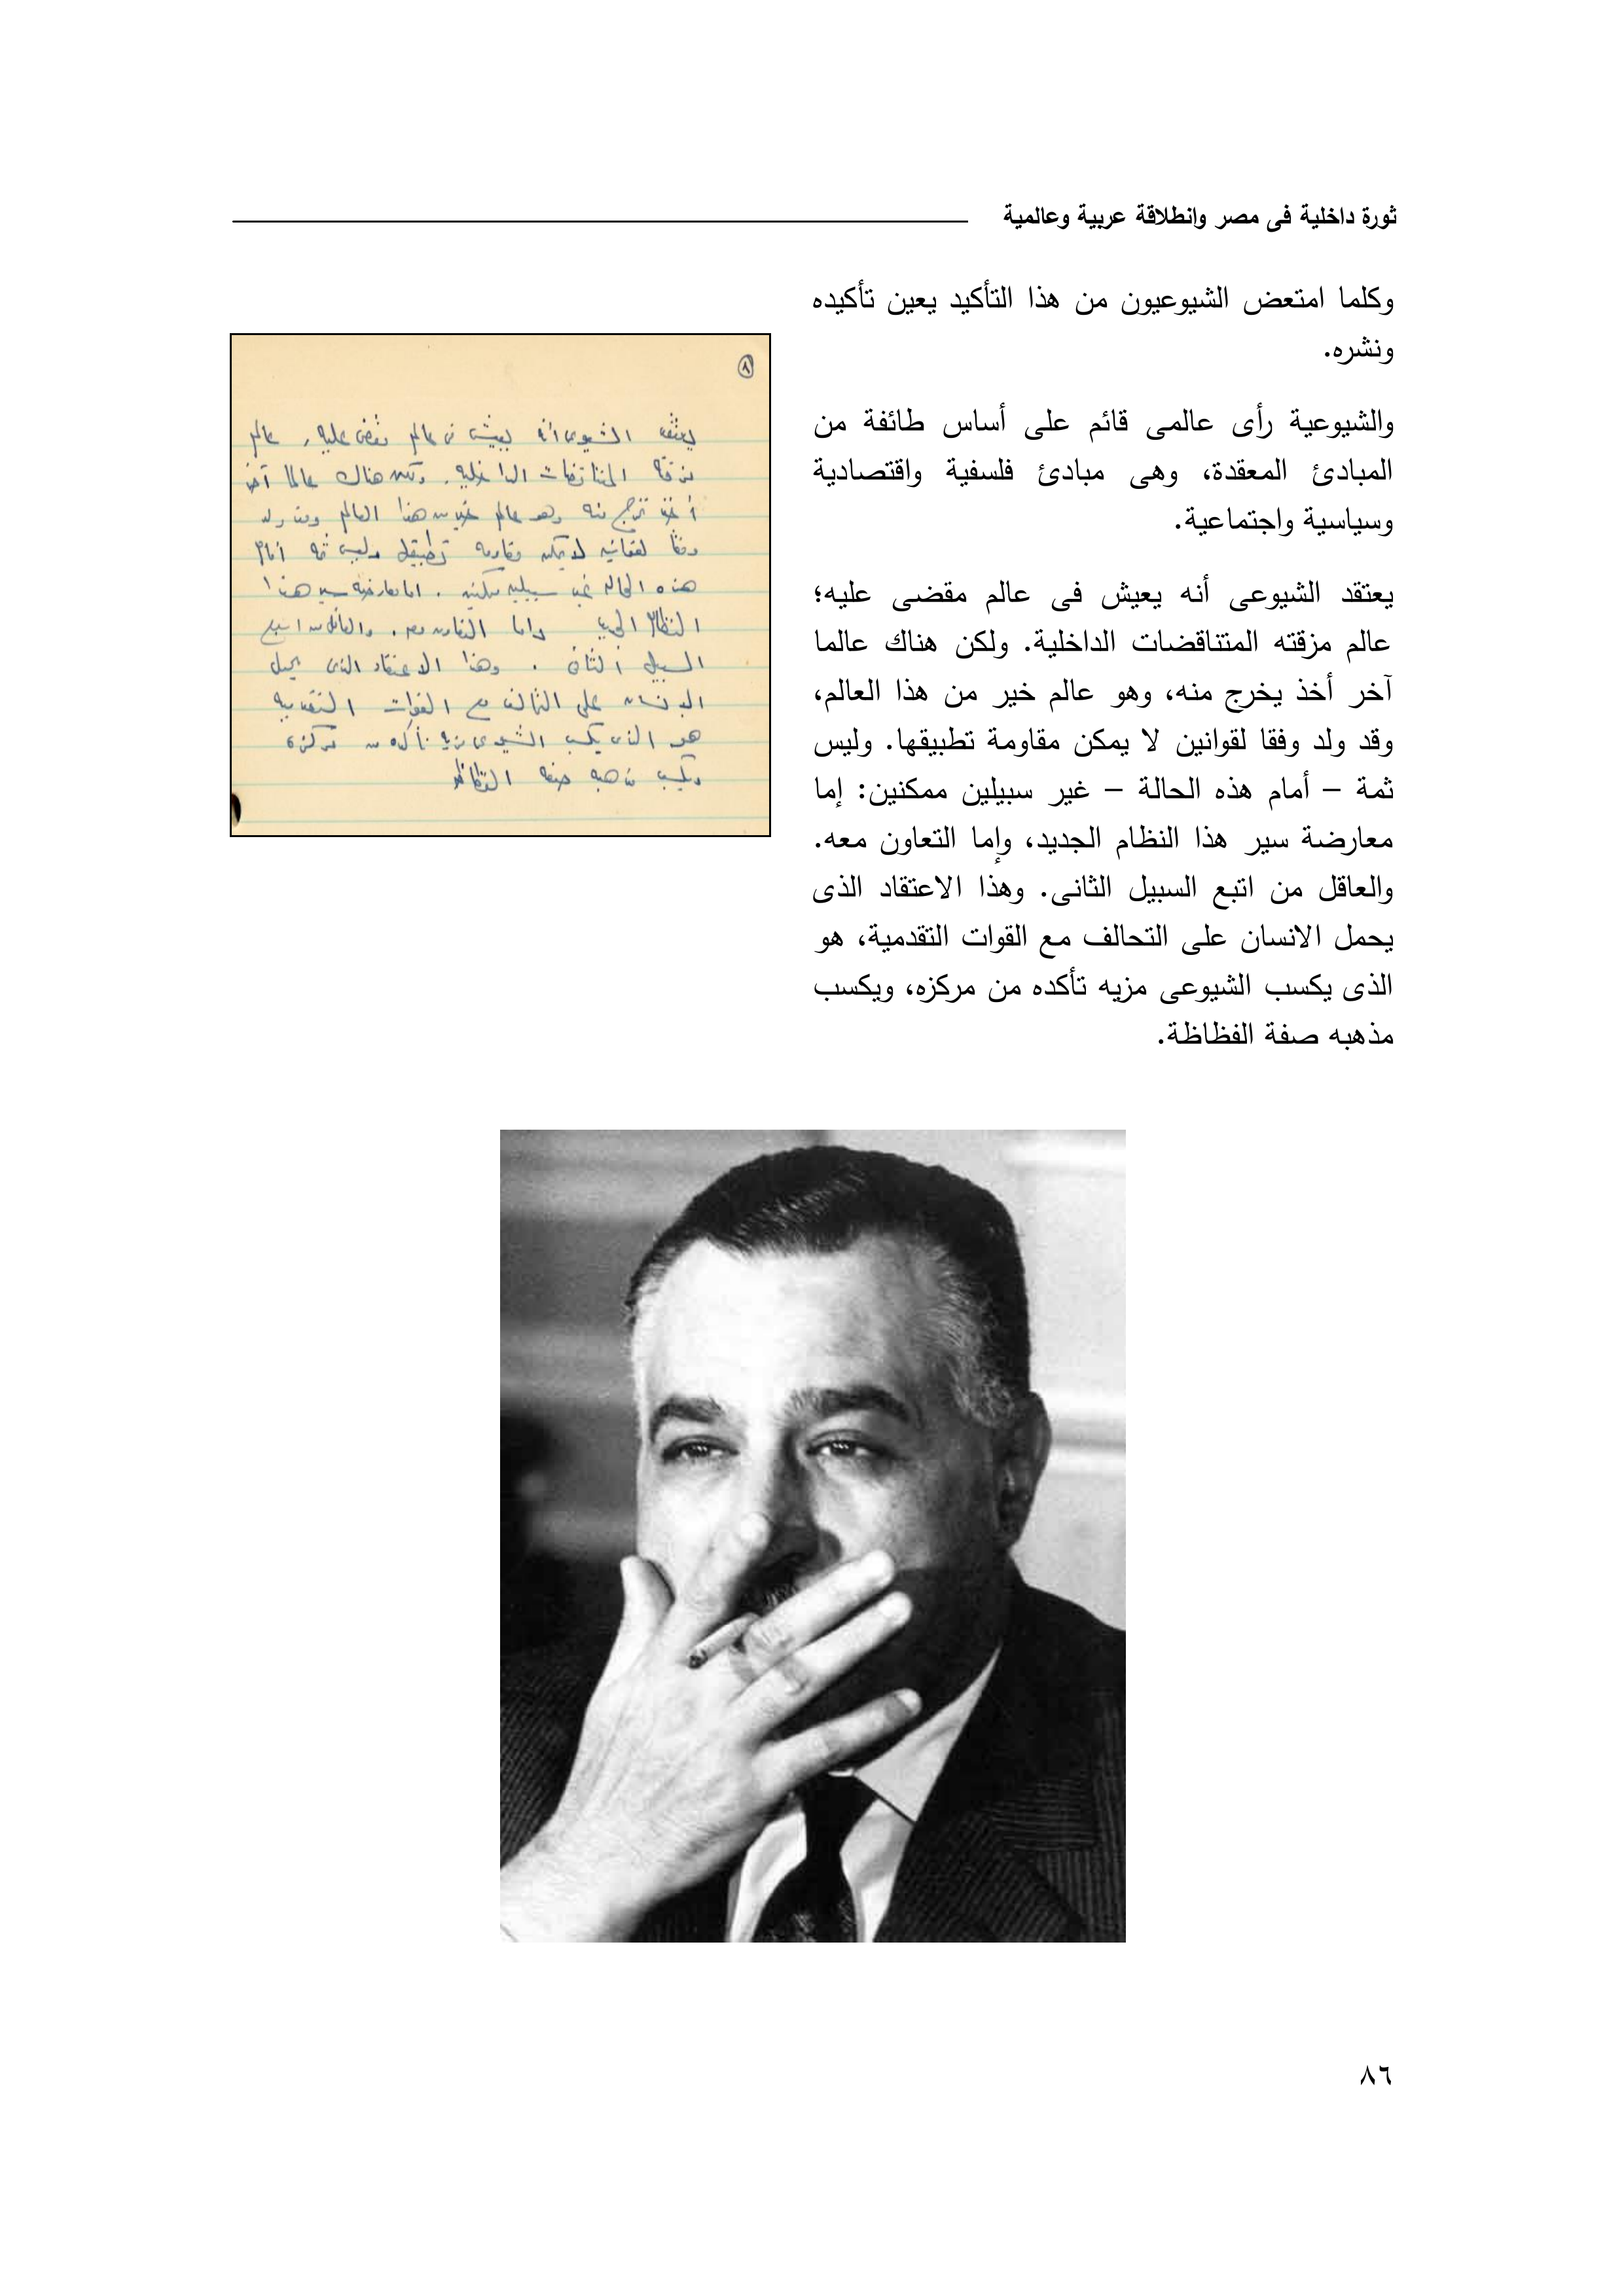 ثورة داخلية فى مصر وانطلاقة عربية وعالمية
وكلما امتعض الشيوعيون من هذا التأكيد يعين تأكيده
ونشره.
والشيوعية رأى عالمى قائم على أساس طائفة من
المبادئ المعقدة، وهى مبادئ فلسفية واقتصادية
وسياسية واجتماعية.
يعتقد الشيوعى أنه يعيش فى عالم مقضى عليه؛
عالم مزقته المتناقضات الداخلية. ولكن هناك عالما
آخر أخذ يخرج منه، وهو عالم خير من هذا العالم،
وقد ولد وفقا لقوانين لا يمكن مقاومة تطبيقها. وليس
ثمة – أمام هذه الحالة – غير سبيلين ممكنين: إما
معارضة سير هذا النظام الجديد، وإما التعاون معه.
والعاقل من اتبع السبيل الثانى. وهذا الاعتقاد الذى
يحمل الانسان على التحالف مع القوات التقدمية، هو
الذى يكسب الشيوعى مزيه تأكده من مركزه، ويكسب
مذهبه صفة الفظاظة.
٨
يعتقد الشيوعى أنه يعيش فى عالم مقضى عليه، عالم
مزقته المتناقضات الداخليه. ولكن هناك عالما آخر
أخذ يخرج منه وهو عالم خير من هذا العالم وقد ولد
وفقا لقوانين لا يمكن مقاومه تطبيقها وليس ثمه أمام
هذه الحاله غير سبيلين ممكنين. اما معارضه سير هذا
النظام الجديد واما التعاون معه. والعاقل من اتبع
السبيل الثانى. وهذا الاعتقاد الذى يحمل
الانسان على التحالف مع القوات التقدميه
هو الذى يكسب الشيوعى مزيه تأكده من مركزه
ويكسب مذهبه صفه الفظاظه
٨٦